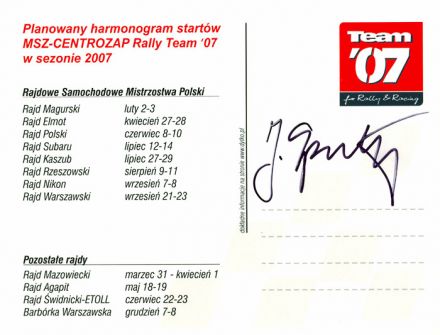 Planowany harmonogram startów
MSZ-CENTROZAP Rally Team '07
w sezonie 2007
Rajdowe Samochodowe Mistrzostwa Polski
Rajd Magurski luty 2-3
Rajd Elmot kwiecień 27-28
Rajd Polski czerwiec 8-10
Rajd Subaru lipiec 12-14
Rajd Kaszub lipiec 27-29
Rajd Rzeszowski sierpień 9-11
Rajd Nikon wrzesień 7-8
Rajd Warszawski wrzesień 21-23
Pozostałe rajdy
Rajd Mazowiecki marzec 31 - kwiecień 1
Rajd Agapit maj 18-19
Rajd Świdnicki-ETOLL czerwiec 22-23
Barbórka Warszawska grudzień 7-8
dokładne informacje na stronie www.dytko.pl
Team
'07
for Rally & Racing
J.